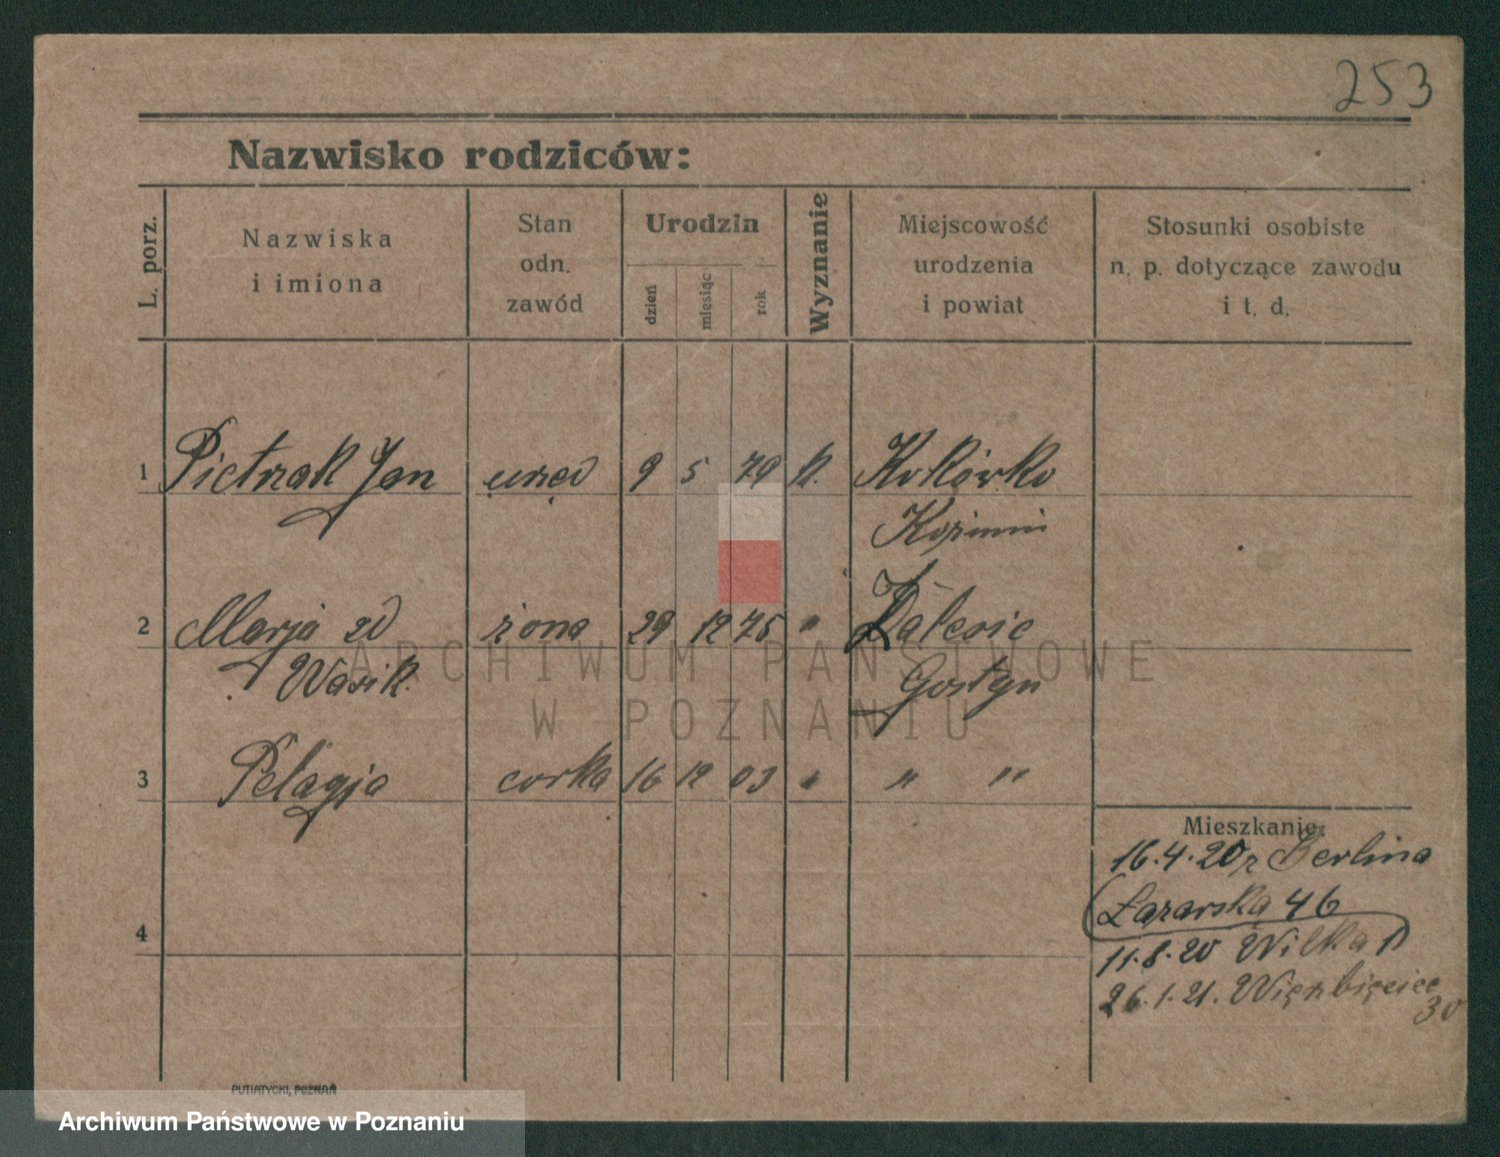 253
Nazwisko rodziców:
L. porz.
Nazwiska
i imiona
Stan
odn.
zawód
Urodzin
dzień
miesiąc
rok
Wyznanie
Miejscowość
urodzenia
i powiat
Stosunki osobiste
n. p. dotyczące zawodu
i t. d.
1 Pietrzak Jan urzęd 9 5 79 k.
Koźmin
2 Marja zd żona 29 12 75 "
Wasik Gostyń
3 Pelagja corka 16 12 03 " " "
4
Mieszkanie:
16.4.20 z Berlina
Łazarska 46
11.8.20 Wilka
26.1.21. Wierzbięcice
30
PUTIATYCKI, POZNAŃ
ARCHIWUM PAŃSTWOWE
W POZNANIU
Archiwum Państwowe w Poznaniu